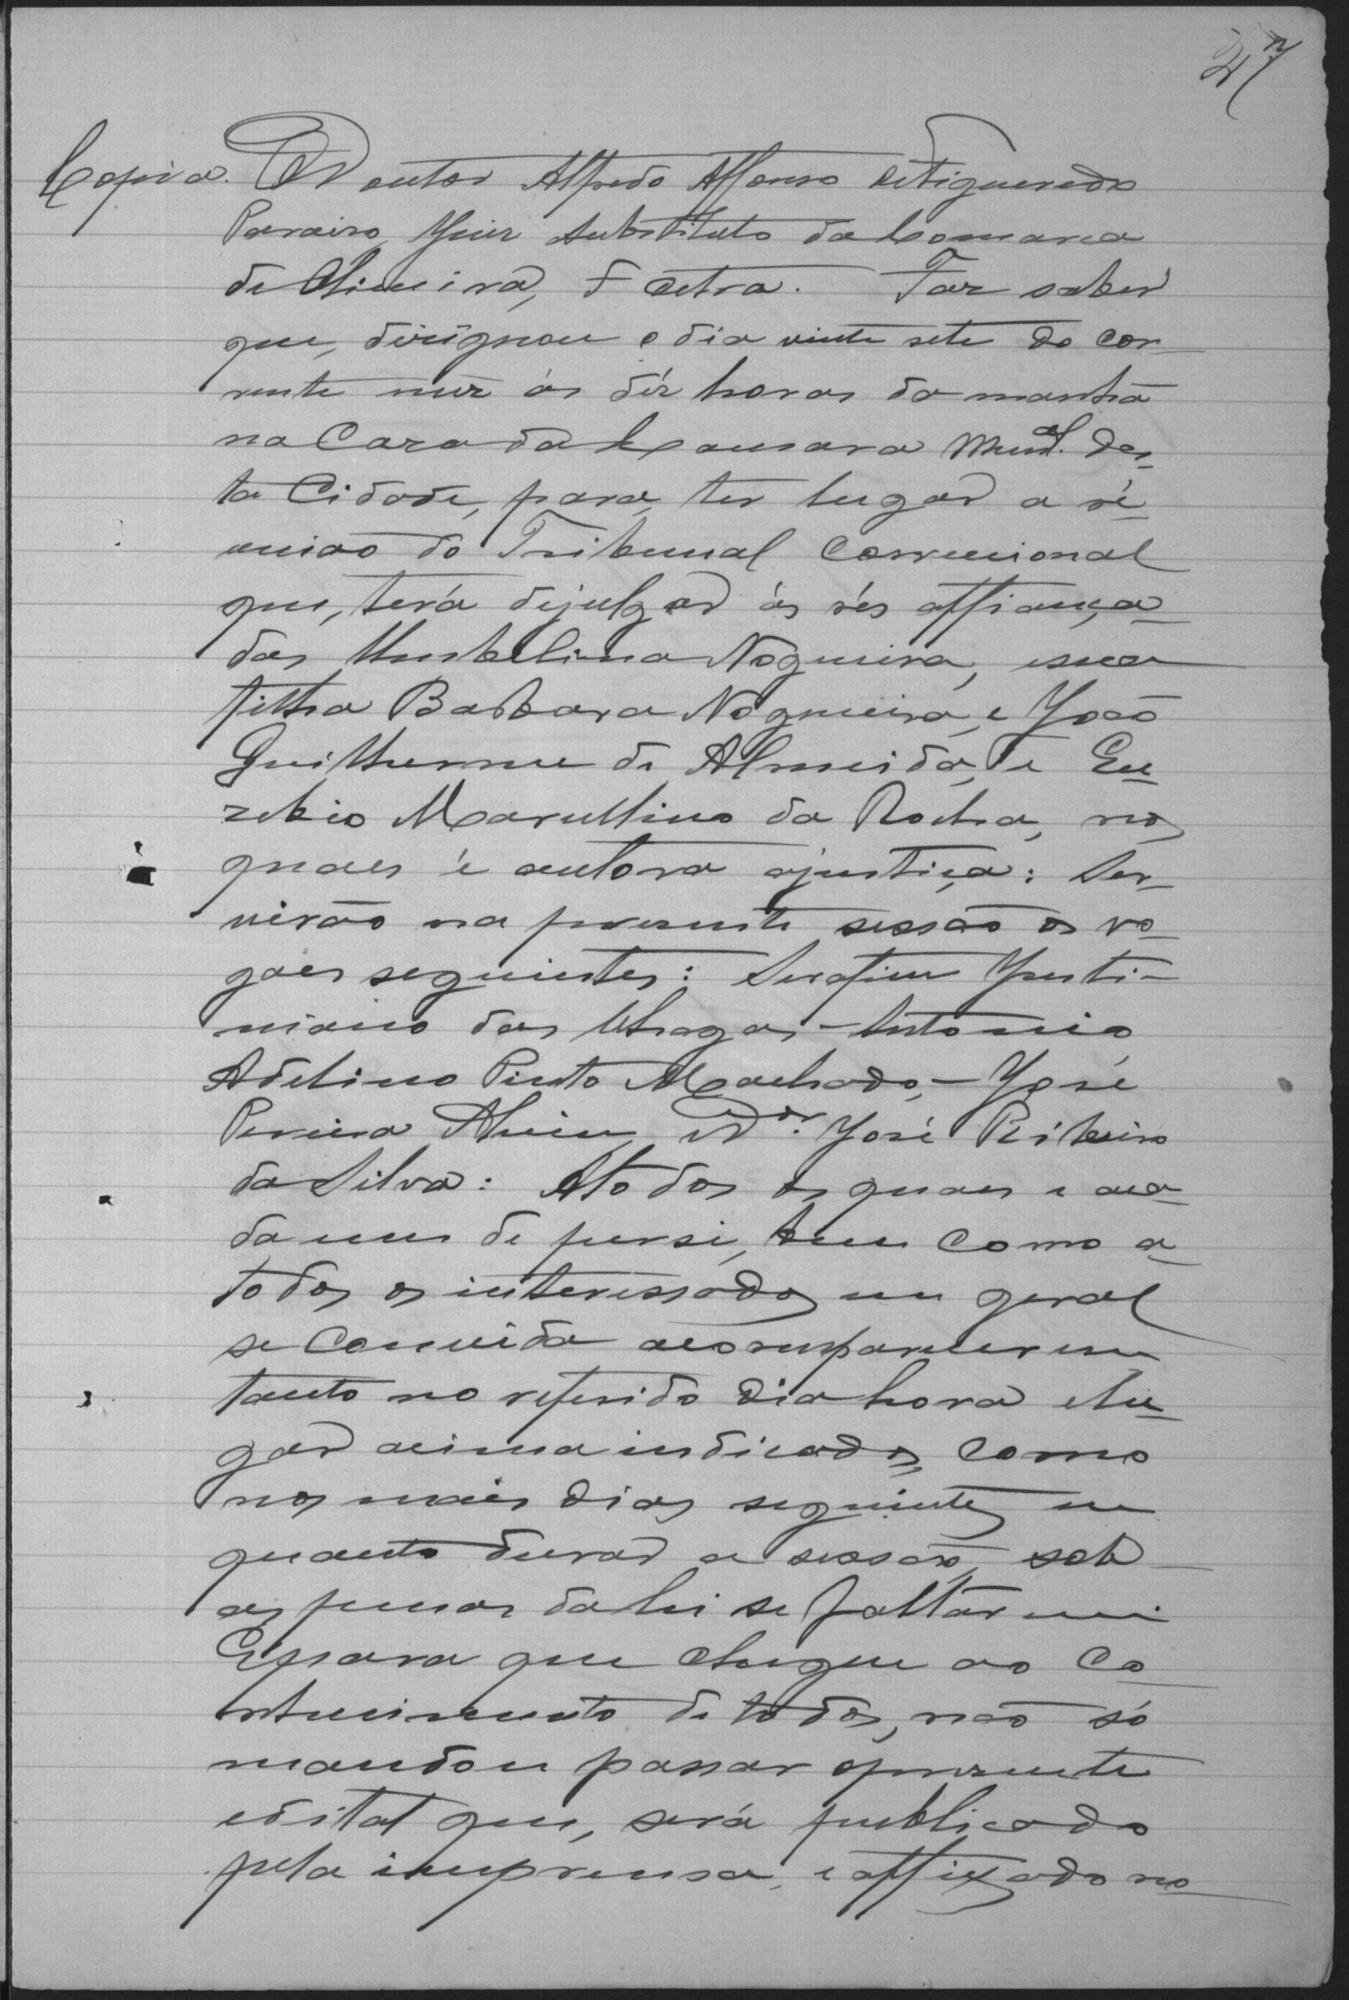 27
Copia. O Doutor Alfredo Affonso de Figueredo
Paraiso Juiz substituto da Comarca
de Oliveira, & Cetra. Faz saber
que, designou o dia vinte sete do cor-
rente mez ás déz horas da manhã
na Caza da Camara Munal. des-
ta Cidade, para, ter lugar a re-
união do Tribunal Correcional
que, terá dejulgar ás rés affiança-
das Umbelina Nogueira, esua
filha Barbara Nogueira, e João
Guilherme de Almeida, e Eu-
zebio Marcellino da Rocha, nos
quaes é autora ajustiça: Ser-
virão na presente sessão os vo-
gaes seguintes: Serafim Justi-
niano das Chagas - Antonio
Adelino Pinto Machado, - José
Pereira Alvim, e Dor. José Ribeiro
da Silva: Atodos os quaes e aca-
da um de persi, bem como a
todos os interessados em geral
se convida acomparecerem
tanto no referido dia hora elu-
gar acima indicados, como
nos mais dias seguintes en
quanto durar a sessão, sob
as penas da lei se faltarem
Epara que chegue ao co-
nhecimento de todos, não só
mandou passar opresente
edital que, será publicado
pela imprensa, e affixado no